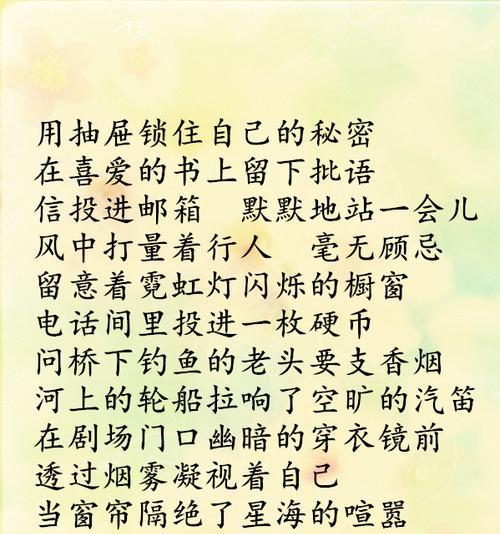 15
用抽屉锁住自己的秘密
在喜爱的书上留下批语
信投进邮箱　默默地站一会儿
风中打量着行人　毫无顾忌
留意着霓虹灯闪烁的橱窗
电话间里投进一枚硬币
问桥下钓鱼的老头要支香烟
河上的轮船拉响了空旷的汽笛
在剧场门口幽暗的穿衣镜前
透过烟雾凝视着自己
当窗帘隔绝了星海的喧嚣